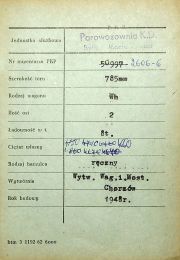 P K P
Jednostka służbowa Parowozownia K.D.
Nr inwentarza PKP 50997 2606-6
Szerokość toru 785mm
Rodzaj wagonu Wh
Ilość osi 2
Ładowność w t. 8t.
Ciężar własny
Rodzaj hamulca ręczny
Wytwórnia Wytw. Wag.i.Most.
Chorzów
Rok budowy 1948r.